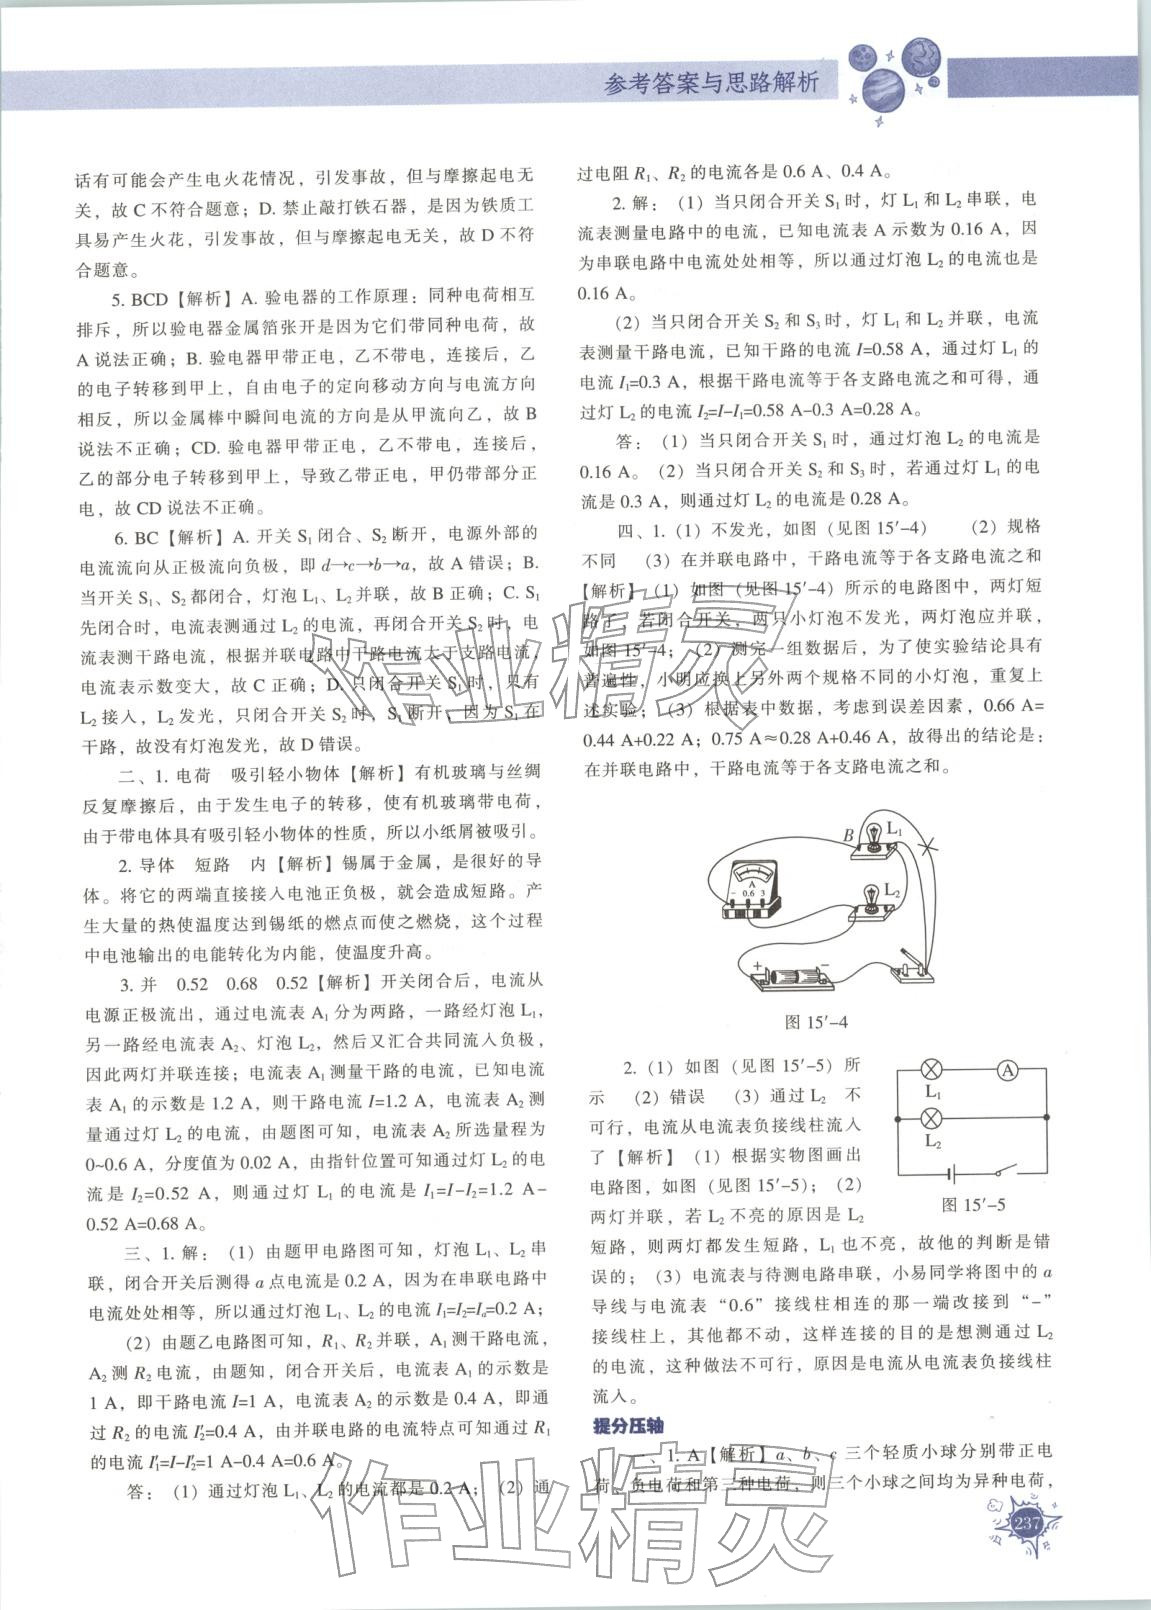 参考答案与思路解析
话有可能会产生电火花情况，引发事故，但与摩擦起电无
关，故 C 不符合题意；D. 禁止敲打铁石器，是因为铁质工
具易产生火花，引发事故，但与摩擦起电无关，故 D 不符
合题意。
5. BCD【解析】A. 验电器的工作原理：同种电荷相互
排斥，所以验电器金属箔张开是因为它们带同种电荷，故
A 说法正确；B. 验电器甲带正电，乙不带电，连接后，乙
的电子转移到甲上，自由电子的定向移动方向与电流方向
相反，所以金属棒中瞬间电流的方向是从甲流向乙，故 B
说法不正确；CD. 验电器甲带正电，乙不带电，连接后，
乙的部分电子转移到甲上，导致乙带正电，甲仍带部分正
电，故 CD 说法不正确。
6. BC【解析】A. 开关 S₁ 闭合、S₂ 断开，电源外部的
电流流向从正极流向负极，即 d→c→b→a，故 A 错误；B.
当开关 S₁、S₂ 都闭合，灯泡 L₁、L₂ 并联，故 B 正确；C. S₁
先闭合时，电流表测通过 L₂ 的电流，再闭合开关 S₂ 时，电
流表测干路电流，根据并联电路中干路电流大于支路电流，
电流表示数变大，故 C 正确；D. 只闭合开关 S₁ 时，只有
L₂ 接入，L₂ 发光，只闭合开关 S₂ 时，S₁ 断开，因为 S₁ 在
干路，故没有灯泡发光，故 D 错误。
二、1. 电荷　吸引轻小物体【解析】有机玻璃与丝绸
反复摩擦后，由于发生电子的转移，使有机玻璃带电荷，
由于带电体具有吸引轻小物体的性质，所以小纸屑被吸引。
2. 导体　短路　内【解析】锡属于金属，是很好的导
体。将它的两端直接接入电池正负极，就会造成短路。产
生大量的热使温度达到锡纸的燃点而使之燃烧，这个过程
中电池输出的电能转化为内能，使温度升高。
3. 并　0.52　0.68　0.52【解析】开关闭合后，电流从
电源正极流出，通过电流表 A₁ 分为两路，一路经灯泡 L₁，
另一路经电流表 A₂、灯泡 L₂，然后又汇合共同流入负极，
因此两灯并联连接；电流表 A₁ 测量干路的电流，已知电流
表 A₁ 的示数是 1.2 A，则干路电流 I=1.2 A，电流表 A₂ 测
量通过灯 L₂ 的电流，由题图可知，电流表 A₂ 所选量程为
0~0.6 A，分度值为 0.02 A，由指针位置可知通过灯 L₂ 的电
流是 I₂=0.52 A，则通过灯 L₁ 的电流是 I₁=I-I₂=1.2 A-
0.52 A=0.68 A。
三、1. 解：（1）由题甲电路图可知，灯泡 L₁、L₂ 串
联，闭合开关后测得 a 点电流是 0.2 A，因为在串联电路中
电流处处相等，所以通过灯泡 L₁、L₂ 的电流 I₁=I₂=Iₐ=0.2 A；
（2）由题乙电路图可知，R₁、R₂ 并联，A₁ 测干路电流，
A₂ 测 R₂ 电流，由题知，闭合开关后，电流表 A₁ 的示数是
1 A，即干路电流 I=1 A，电流表 A₂ 的示数是 0.4 A，即通
过 R₂ 的电流 I₂′=0.4 A，由并联电路的电流特点可知通过 R₁
的电流 I₁′=I-I₂′=1 A-0.4 A=0.6 A。
答：（1）通过灯泡 L₁、L₂ 的电流都是 0.2 A；（2）通
过电阻 R₁、R₂ 的电流各是 0.6 A、0.4 A。
2. 解：（1）当只闭合开关 S₁ 时，灯 L₁ 和 L₂ 串联，电
流表测量电路中的电流，已知电流表 A 示数为 0.16 A，因
为串联电路中电流处处相等，所以通过灯泡 L₂ 的电流也是
0.16 A。
（2）当只闭合开关 S₂ 和 S₃ 时，灯 L₁ 和 L₂ 并联，电流
表测量干路电流，已知干路的电流 I=0.58 A，通过灯 L₁ 的
电流 I₁=0.3 A，根据干路电流等于各支路电流之和可得，通
过灯 L₂ 的电流 I₂=I-I₁=0.58 A-0.3 A=0.28 A。
答：（1）当只闭合开关 S₁ 时，通过灯泡 L₂ 的电流是
0.16 A。（2）当只闭合开关 S₂ 和 S₃ 时，若通过灯 L₁ 的电
流是 0.3 A，则通过灯 L₂ 的电流是 0.28 A。
四、1.（1）不发光，如图（见图 15′-4）　（2）规格
不同　（3）在并联电路中，干路电流等于各支路电流之和
【解析】（1）如图（见图 15′-4）所示的电路图中，两灯短
路了，若闭合开关，两只小灯泡不发光，两灯泡应并联，
如图 15′-4；（2）测完一组数据后，为了使实验结论具有
普遍性，小明应换上另外两个规格不同的小灯泡，重复上
述实验；（3）根据表中数据，考虑到误差因素，0.66 A=
0.44 A+0.22 A；0.75 A≈0.28 A+0.46 A，故得出的结论是：
在并联电路中，干路电流等于各支路电流之和。
B L₁
A
- 0.6 3
L₂
+ -
图 15′-4
2.（1）如图（见图 15′-5）所
示　（2）错误　（3）通过 L₂　不
可行，电流从电流表负接线柱流入
了【解析】（1）根据实物图画出
电路图，如图（见图 15′-5）；（2）
两灯并联，若 L₂ 不亮的原因是 L₂
短路，则两灯都发生短路，L₁ 也不亮，故他的判断是错
误的；（3）电流表与待测电路串联，小易同学将图中的 a
导线与电流表“0.6”接线柱相连的那一端改接到“-”
接线柱上，其他都不动，这样连接的目的是想测通过 L₂
的电流，这种做法不可行，原因是电流从电流表负接线柱
流入。
A
L₁
L₂
图 15′-5
提分压轴
一、1. A【解析】a、b、c 三个轻质小球分别带正电
荷、负电荷和第三种电荷，则三个小球之间均为异种电荷，
237
作业精灵
作业精灵